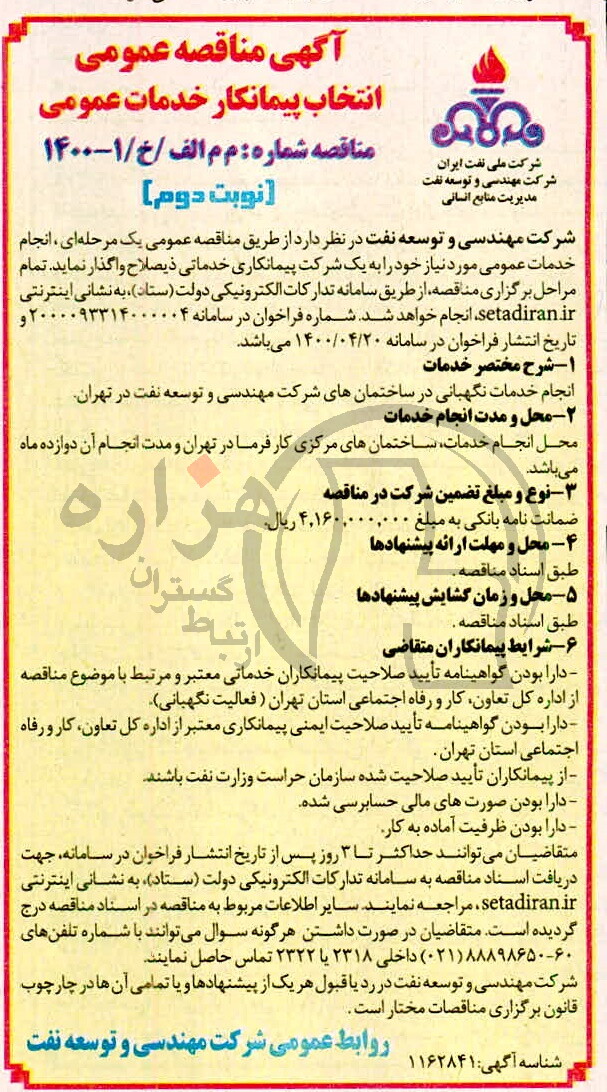 آگهی مناقصه عمومی
انتخاب پیمانکار خدمات عمومی
مناقصه شماره: م م الف /خ/۱-۱۴۰۰
[نوبت دوم]
شرکت ملی نفت ایران
شرکت مهندسی و توسعه نفت
مدیریت منابع انسانی
شرکت مهندسی و توسعه نفت در نظر دارد از طریق مناقصه عمومی یک مرحله‌ای ، انجام
خدمات عمومی مورد نیاز خود را به یک شرکت پیمانکاری خدماتی ذیصلاح واگذار نماید. تمام
مراحل برگزاری مناقصه، از طریق سامانه تدارکات الکترونیکی دولت (ستاد)، به نشانی اینترنتی
setadiran.ir، انجام خواهد شد. شماره فراخوان در سامانه ۲۰۰۰۰۹۳۳۱۴۰۰۰۰۰۴ و
تاریخ انتشار فراخوان در سامانه ۱۴۰۰/۰۴/۲۰ می‌باشد.
۱-شرح مختصر خدمات
انجام خدمات نگهبانی در ساختمان های شرکت مهندسی و توسعه نفت در تهران.
۲-محل و مدت انجام خدمات
محل انجام خدمات، ساختمان های مرکزی کارفرما در تهران و مدت انجام آن دوازده ماه
می‌باشد.
۳-نوع و مبلغ تضمین شرکت در مناقصه
ضمانت نامه بانکی به مبلغ ۴,۱۶۰,۰۰۰,۰۰۰ ریال.
۴- محل و مهلت ارائه پیشنهادها
طبق اسناد مناقصه .
۵-محل و زمان گشایش پیشنهادها
طبق اسناد مناقصه .
۶-شرایط پیمانکاران متقاضی
-دارا بودن گواهینامه تأیید صلاحیت پیمانکاران خدماتی معتبر و مرتبط با موضوع مناقصه
از اداره کل تعاون، کار و رفاه اجتماعی استان تهران ( فعالیت نگهبانی).
-دارا بودن گواهینامه تأیید صلاحیت ایمنی پیمانکاری معتبر از اداره کل تعاون، کار و رفاه
اجتماعی استان تهران .
-از پیمانکاران تأیید صلاحیت شده سازمان حراست وزارت نفت باشند.
-دارا بودن صورت های مالی حسابرسی شده.
-دارا بودن ظرفیت آماده به کار.
متقاضیان می‌توانند حداکثر تا ۳ روز پس از تاریخ انتشار فراخوان در سامانه، جهت
دریافت اسناد مناقصه به سامانه تدارکات الکترونیکی دولت (ستاد)، به نشانی اینترنتی
setadiran.ir ، مراجعه نمایند. سایر اطلاعات مربوط به مناقصه در اسناد مناقصه درج
گردیده است. متقاضیان در صورت داشتن هرگونه سوال می‌توانند با شماره تلفن‌های
۶۰-۸۸۸۹۸۶۵۰ (۰۲۱) داخلی ۲۳۱۸ یا ۲۳۲۲ تماس حاصل نمایند.
شرکت مهندسی و توسعه نفت در رد یا قبول هر یک از پیشنهادها و یا تمامی آن ها در چارچوب
قانون برگزاری مناقصات مختار است .
روابط عمومی شرکت مهندسی و توسعه نفت
شناسه آگهی: ۱۱۶۲۸۴۱
هزاره
گستران
ارتباط